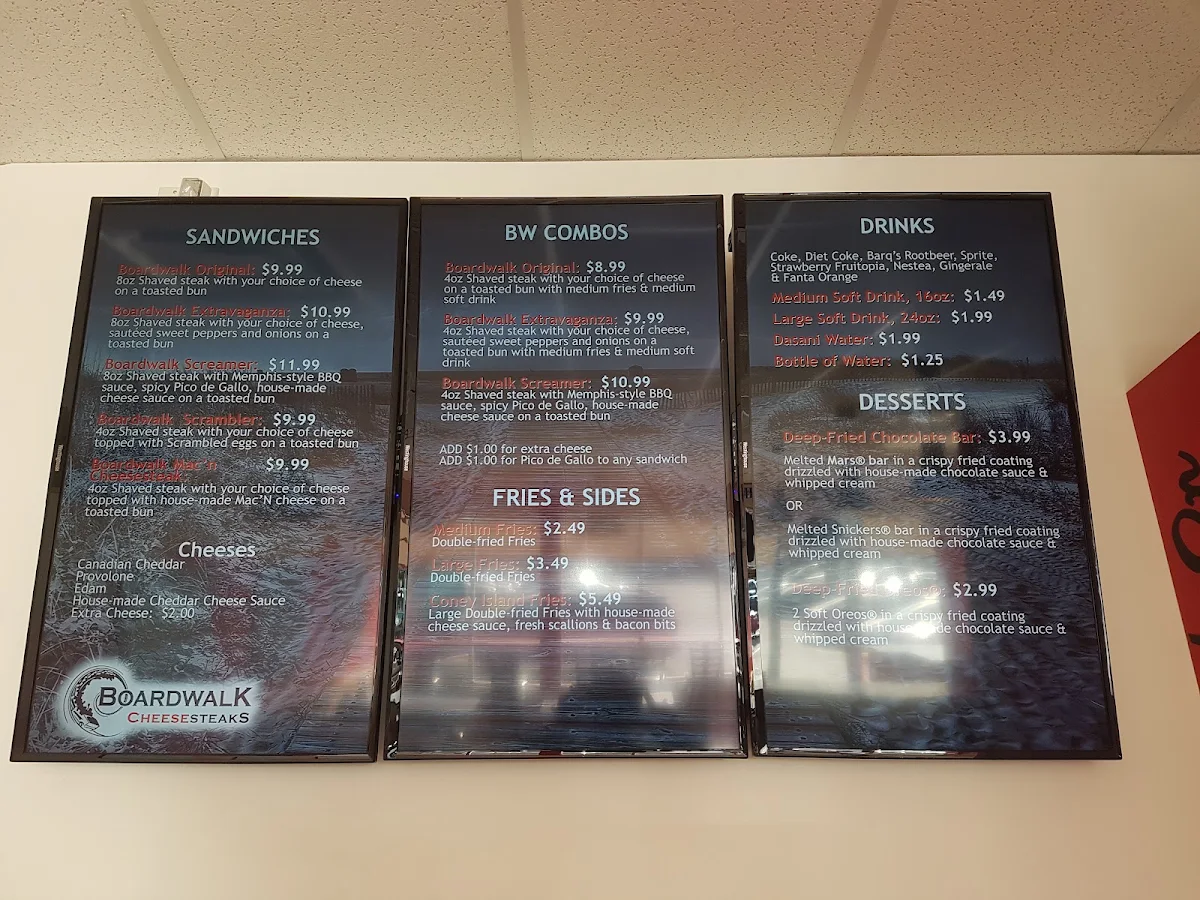 SANDWICHES
Boardwalk Original: $9.99
8oz Shaved steak with your choice of cheese
on a toasted bun
Boardwalk Extravaganza: $10.99
8oz Shaved steak with your choice of cheese,
sautéed sweet peppers and onions on a
toasted bun
Boardwalk Screamer: $11.99
8oz Shaved steak with Memphis-style BBQ
sauce, spicy Pico de Gallo, house-made
cheese sauce on a toasted bun
Boardwalk Scrambler: $9.99
4oz Shaved steak with your choice of cheese
topped with Scrambled eggs on a toasted bun
Boardwalk Mac'n $9.99
Cheesesteak
4oz Shaved steak with your choice of cheese
topped with house-made Mac'N cheese on a
toasted bun
Cheeses
Canadian Cheddar
Provolone
Edam
House-made Cheddar Cheese Sauce
Extra Cheese: $2.00
BOARDWALK
CHEESESTEAKS
BW COMBOS
Boardwalk Original: $8.99
4oz Shaved steak with your choice of cheese
on a toasted bun with medium fries & medium
soft drink
Boardwalk Extravaganza: $9.99
4oz Shaved steak with your choice of cheese,
sautéed sweet peppers and onions on a
toasted bun with medium fries & medium soft
drink
Boardwalk Screamer: $10.99
4oz Shaved steak with Memphis-style BBQ
sauce, spicy Pico de Gallo, house-made
cheese sauce on a toasted bun
ADD $1.00 for extra cheese
ADD $1.00 for Pico de Gallo to any sandwich
FRIES & SIDES
Medium Fries: $2.49
Double-fried Fries
Large Fries: $3.49
Double-fried Fries
Coney Island Fries: $5.49
Large Double-fried Fries with house-made
cheese sauce, fresh scallions & bacon bits
DRINKS
Coke, Diet Coke, Barq's Rootbeer, Sprite,
Strawberry Fruitopia, Nestea, Gingerale
& Fanta Orange
Medium Soft Drink, 16oz: $1.49
Large Soft Drink, 24oz: $1.99
Dasani Water: $1.99
Bottle of Water: $1.25
DESSERTS
Deep-Fried Chocolate Bar: $3.99
Melted Mars® bar in a crispy fried coating
drizzled with house-made chocolate sauce &
whipped cream
OR
Melted Snickers® bar in a crispy fried coating
drizzled with house-made chocolate sauce &
whipped cream
Deep-Fried Oreos®: $2.99
2 Soft Oreos® in a crispy fried coating
drizzled with house-made chocolate sauce &
whipped cream